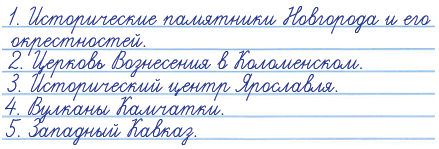 1. Исторические памятники Новгорода и его
окрестностей.
2. Церковь Вознесения в Коломенском.
3. Исторический центр Ярославля.
4. Вулканы Камчатки.
5. Западный Кавказ.